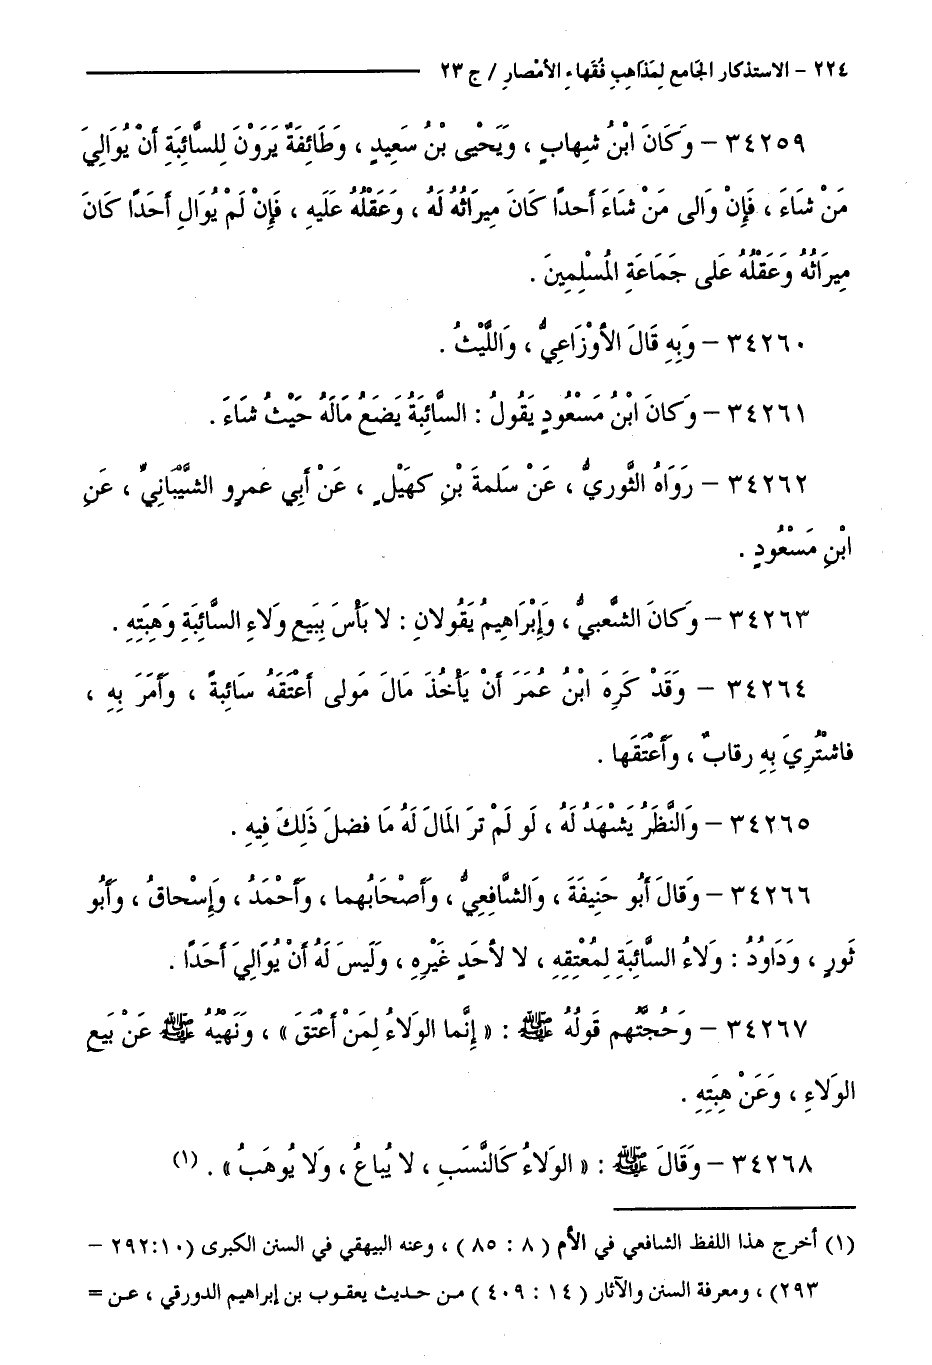 ٢٢٤ - الاستذكار الجَامع لِمَذَاهِبِ فُقَهاءِ الأَمْصارِ / ج ٢٣
٣٤٢٥٩ - وَكَانَ ابْنُ شِهابٍ ، وَيَحْيى بْنُ سَعِيدٍ ، وَطَائِفَةٌ يَرَوْنَ لِلسَّائِبَةِ أَنْ يُوَالِيَ
مَنْ شاءَ ، فَإِنْ وَالى مَنْ شاءَ أحداً كانَ مِيرَاثُهُ لَهُ ، وَعَقْلُهُ عَليهِ ، فَإِنْ لَمْ يُوَالِ أَحَدًا كانَ
مِيرَاثُهُ وَعَقْلُهُ عَلى جَمَاعَةِ المُسْلِمِينَ .
٣٤٢٦٠ - وَبِهِ قَالَ الأَوْزَاعِيُّ ، وَاللَّيْثُ .
٣٤٢٦١ - وَكانَ ابْنُ مَسْعُودٍ يَقُولُ : السَّائِبَةُ يَضَعُ مَالَهُ حَيْثُ شاءَ .
٣٤٢٦٢ - رَوَاهُ الثَّوريُّ ، عَنْ سَلمةَ بْنِ كهَيْلٍ ، عَنْ أَبِي عَمرٍو الشَّيْبَانِيِّ ، عَنِ
ابْنِ مَسْعُودٍ .
٣٤٢٦٣ - وَكانَ الشَّعبيُّ ، وَإِبْرَاهِيمُ يَقُولانِ : لا بَأْسَ بِبَيعِ وَلاءِ السَّائِبَةِ وَهِبَتِهِ .
٣٤٢٦٤ - وَقَدْ كَرِهَ ابْنُ عُمَرَ أَنْ يَأْخُذَ مَالَ مَولى أعْتَقَهُ سَائِبةً ، وَأَمَرَ بِهِ ،
فاشْتُرِيَ بِهِ رقابٌ ، وَأَعْتَقَها .
٣٤٢٦٥ - وَالنَّظَرُ يَشْهَدُ لَهُ ، لَو لَمْ ترَ المَالَ لَهُ مَا فضلَ ذَلِكَ فِيهِ .
٣٤٢٦٦ - وَقالَ أَبُو حَنِيفَةَ ، وَالشَّافِعِيُّ ، وَأَصْحَابُهما ، وَأَحْمَدُ ، وَإِسْحاقُ ، وَأَبُو
ثَورٍ ، وَدَاوُدُ : وَلاءُ السَّائِبَةِ لِمُعْتِقِهِ ، لا لأحَدٍ غَيْرِهِ ، وَلَيسَ لَهُ أَنْ يُوَالِيَ أَحَدًا .
٣٤٢٦٧ - وَحُجَّتُهم قَولُهُ ﷺ : « إِنَّما الوَلاءُ لِمَنْ أَعْتَقَ » ، وَنَهْيُهُ ﷺ عَنْ بَيعِ
الوَلاءِ ، وَعَنْ هِبَتِهِ .
٣٤٢٦٨ - وَقَالَ ﷺ : « الوَلاءُ كَالنَّسَبِ ، لا يُباعُ ، وَلا يُوهَبُ » . (١)
(١) أخرج هذا اللفظ الشافعي في الأم ( ٨ : ٨٥ ) ، وعنه البيهقي في السنن الكبرى (١٠:٢٩٢ -
٢٩٣) ، ومعرفة السنن والآثار ( ١٤ : ٤٠٩ ) من حديث يعقوب بن إبراهيم الدورقي ، عن =